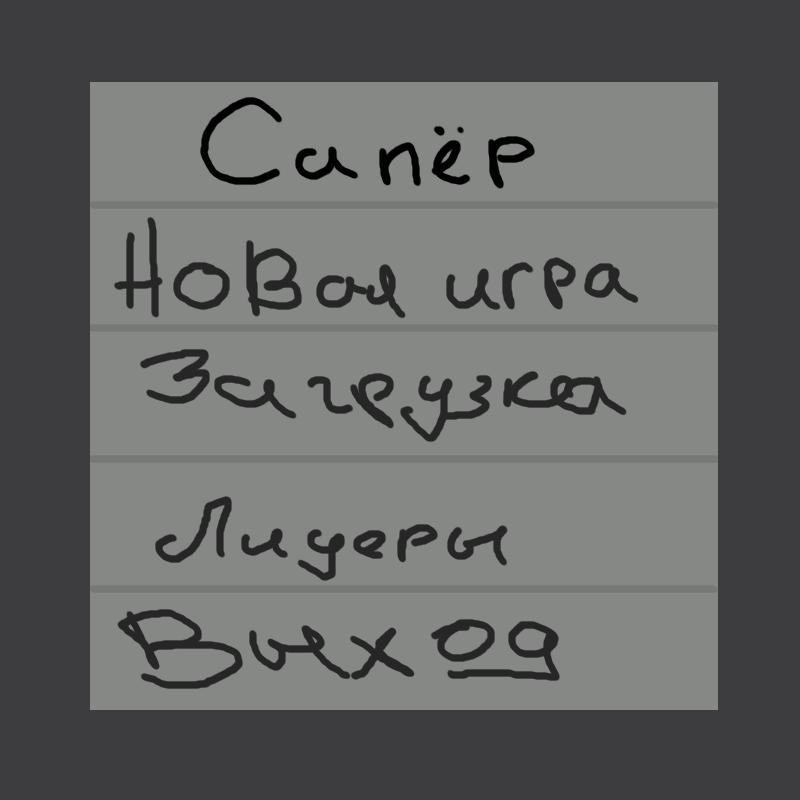 Сапёр
Новая игра
Загрузка
Лидеры
Выход